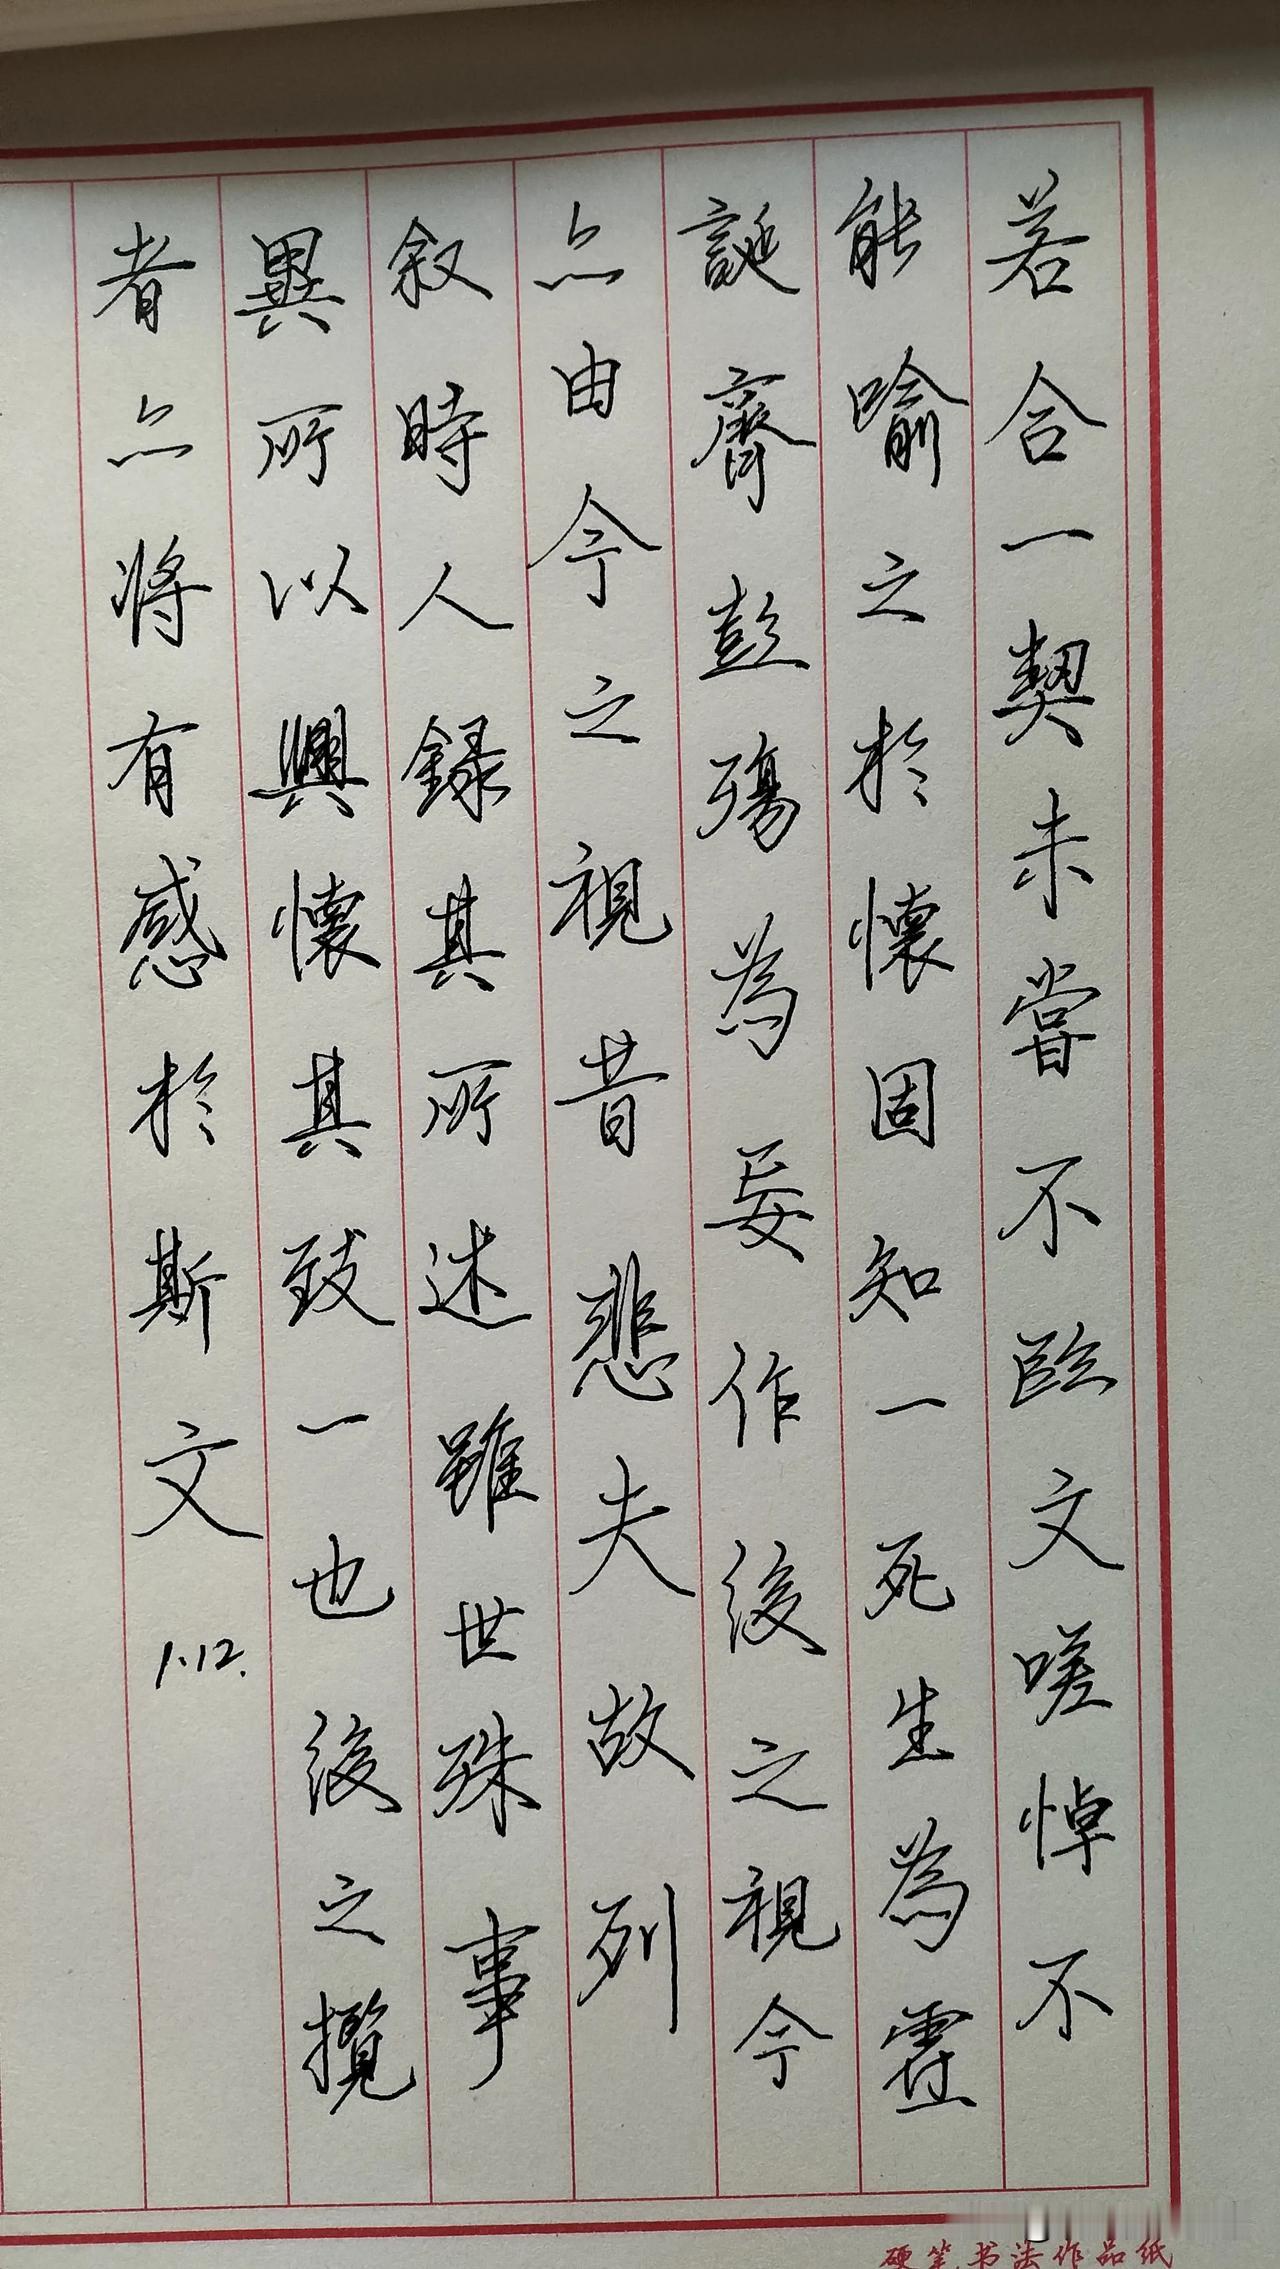 若合一契未嘗不臨文嗟悼不
能喻之於懷固知一死生為虛
誕齊彭殤為妄作後之視今
亦由今之視昔悲夫故列
叙時人錄其所述雖世殊事
異所以興懷其致一也後之攬
者亦將有感於斯文
1.12.
硬笔书法作品纸